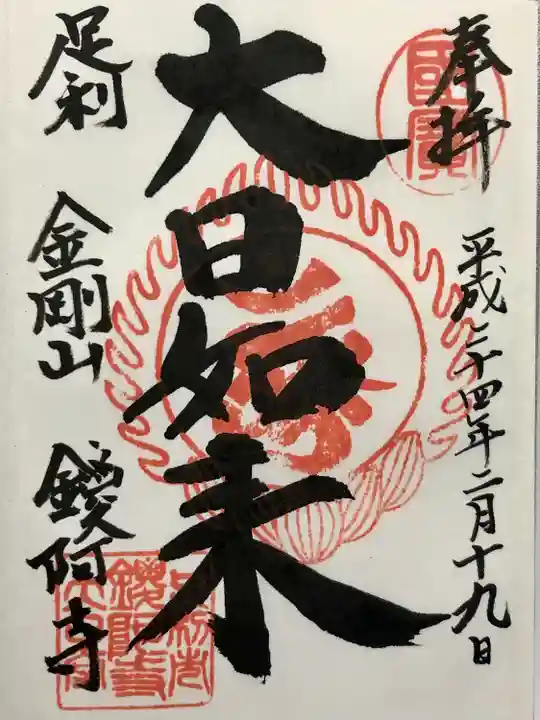 奉拝
國寳
平成二十四年二月十九日
大日如来
足利
金剛山
鑁阿寺